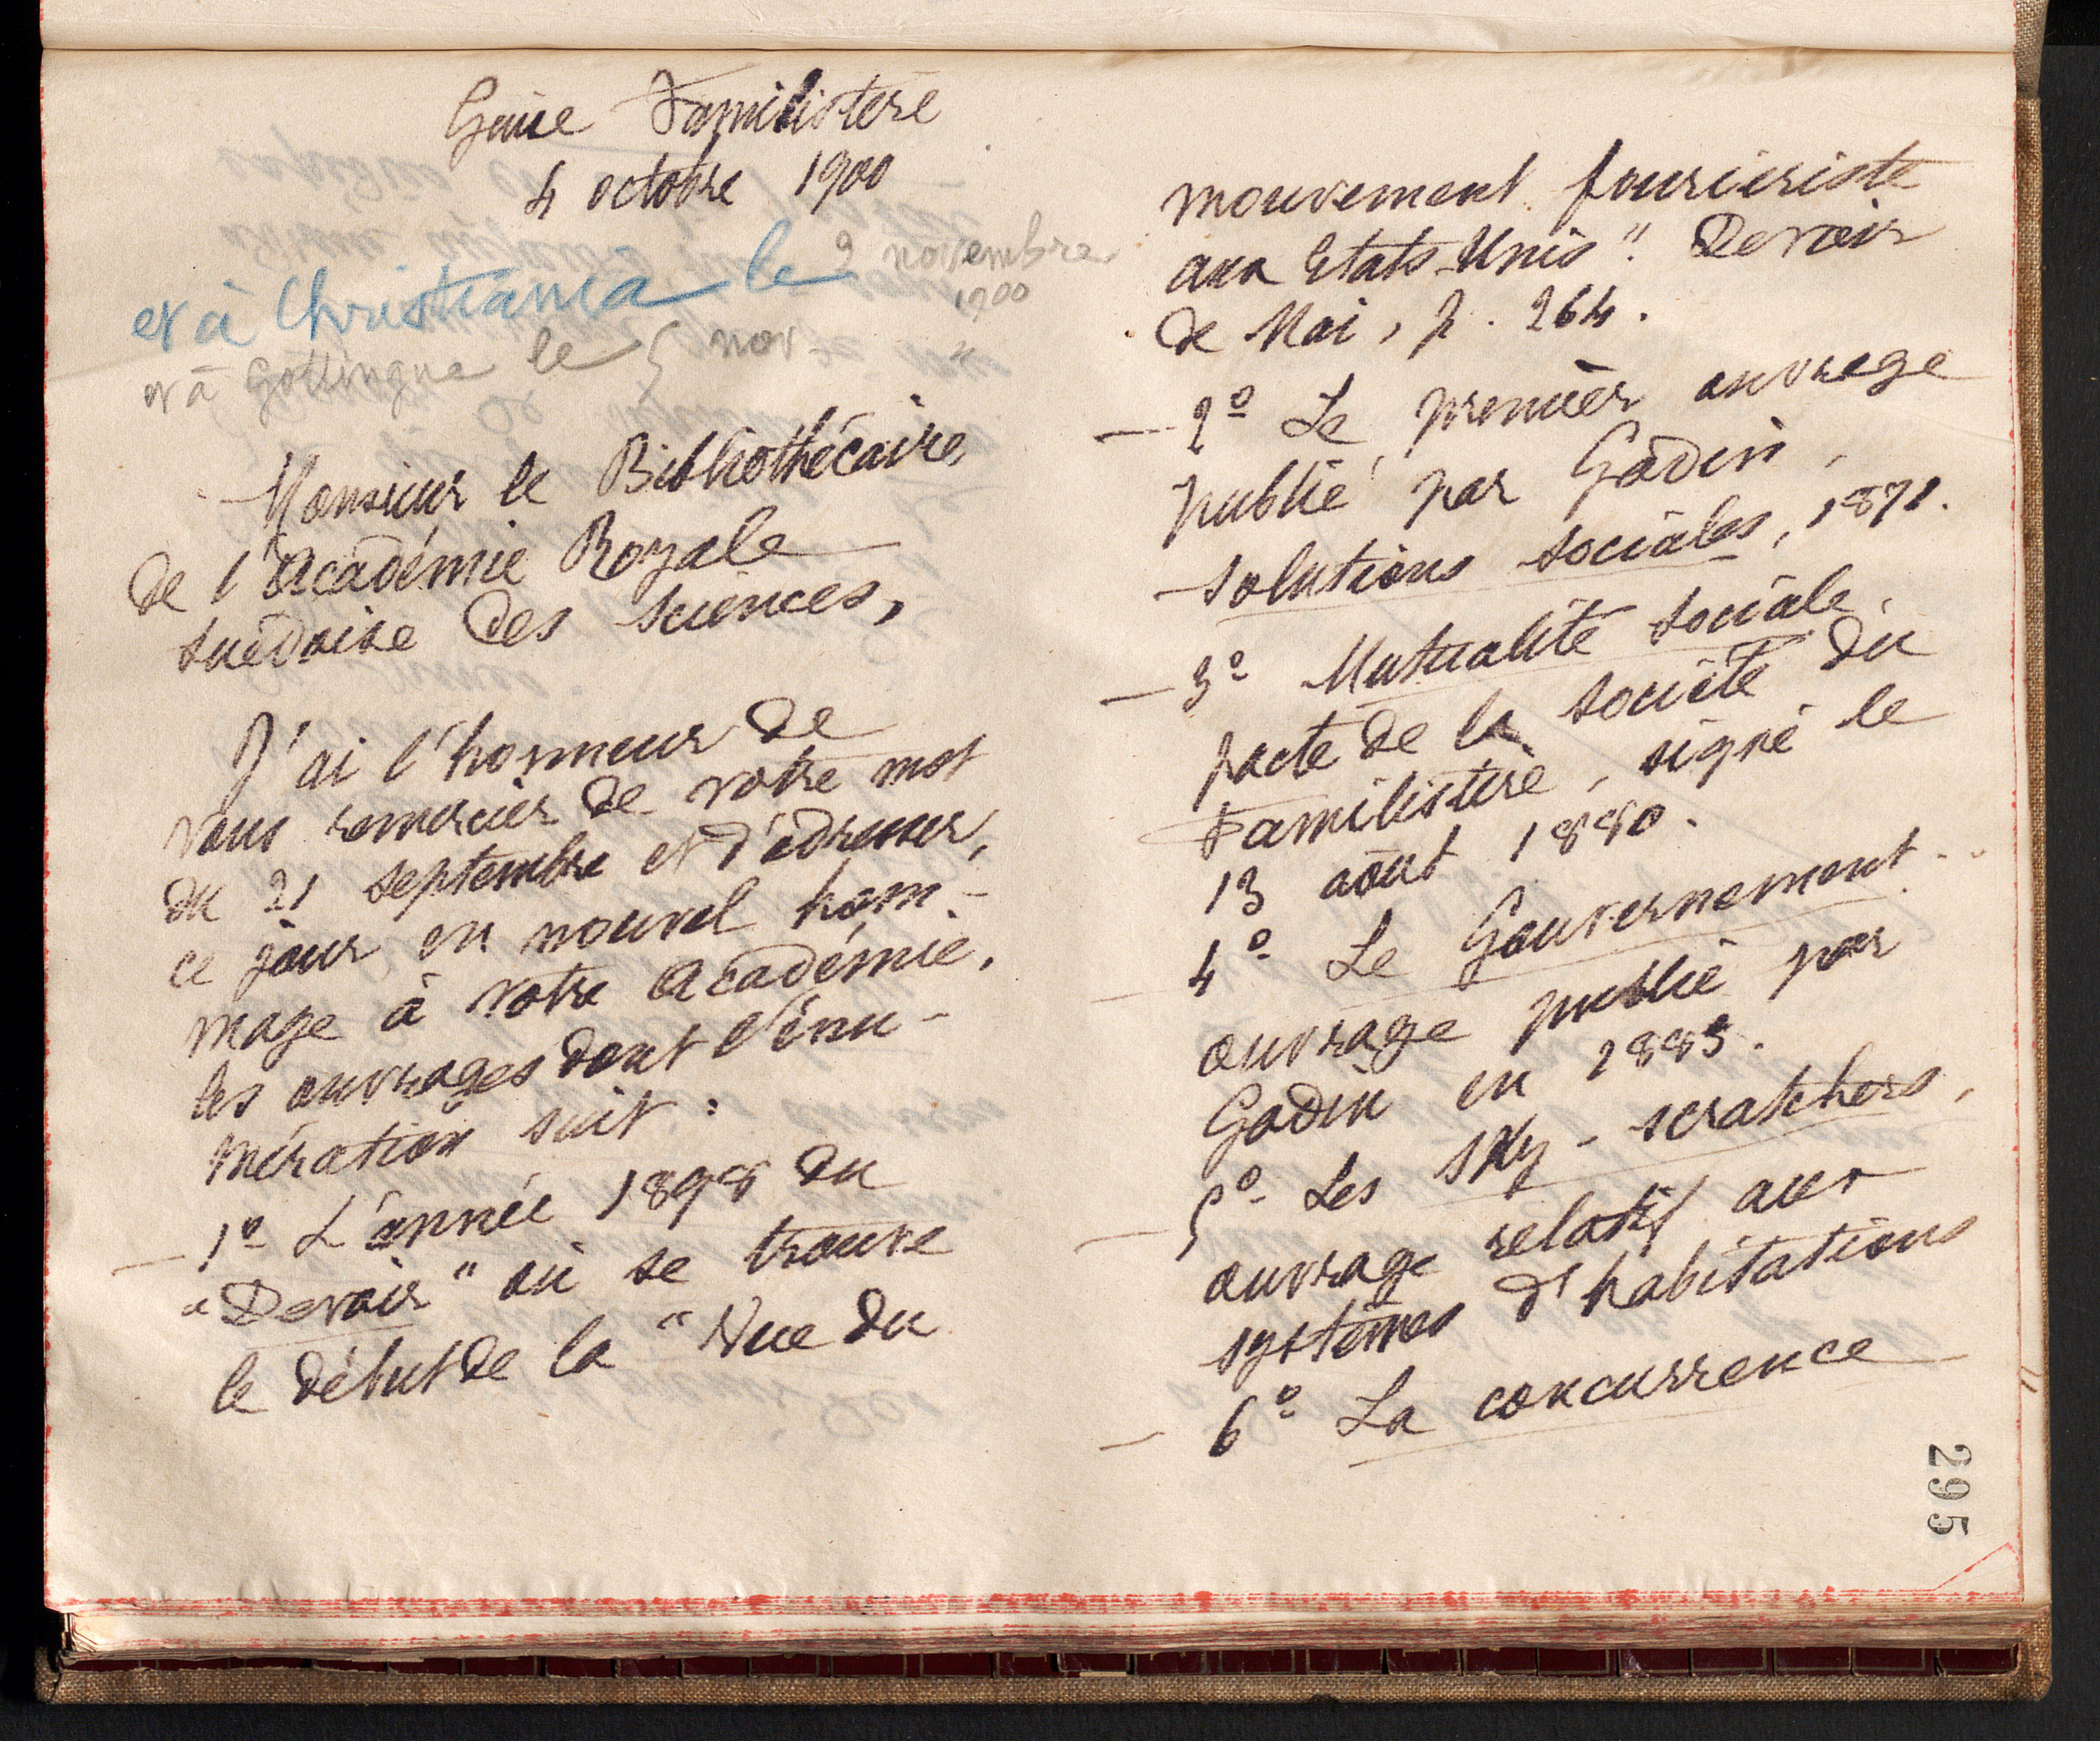 Guise Familistère
4 octobre 1900
et à Christiania le 2 novembre
1900
et à Göttingue le 5 nov "
Monsieur le Bibliothécaire,
de l'Académie Royale
suédoise des sciences,
J'ai l'honneur de
vous remercier de votre mot
du 21 septembre et d'adresser,
ce jour en nouvel hom-
mage à votre Académie,
les ouvrages dont l'énu-
mération suit :
— 1º L'année 1898 du
"Devoir" où se trouve
le début de la "Vue du
mouvement fouriériste
aux Etats-Unis". Devoir
de Mai, p. 264.
— 2º Le premier ouvrage
publié par Godin,
Solutions sociales, 1871.
— 3º Mutualité sociale,
pacte de la société du
Familistère, signé le
13 août 1880.
— 4º Le Gouvernement..
ouvrage publié par
Godin en 1883.
— 5º Les sky-scratchers,
ouvrage relatif aux
systèmes d'habitations
— 6º La concurrence
295